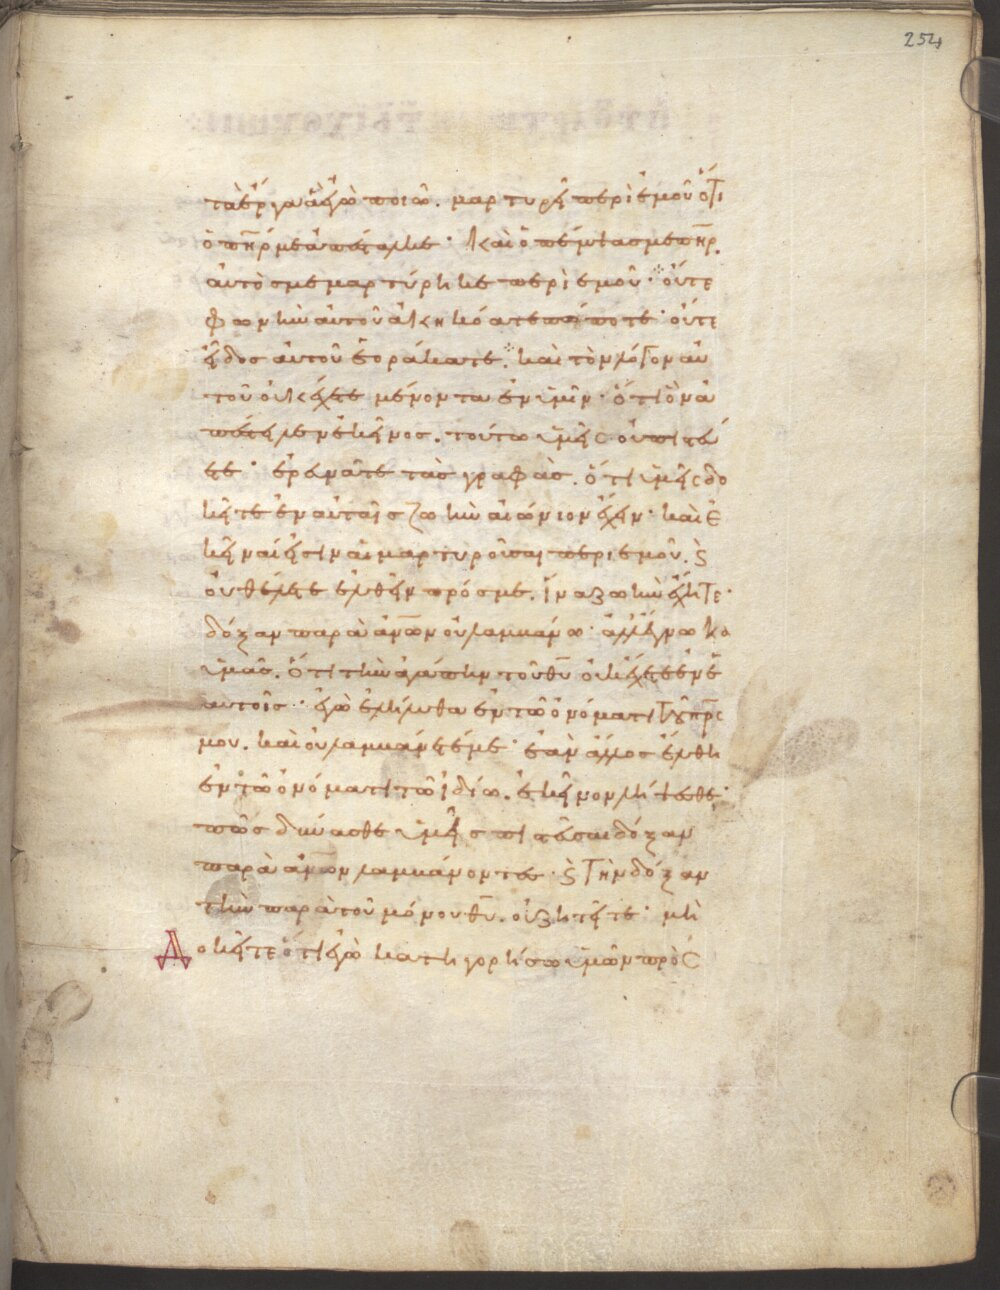 254
τὰ ἔργα ἃ ἐγὼ ποιῶ. μαρτυρεῖ περὶ ἐμοῦ ὅτι
ὁ πηρ με ἀπέσταλκε· καὶ ὁ πέμψας με πηρ.
αὐτὸς μεμαρτύρηκε περὶ ἐμοῦ· οὔτε
φωνὴν αὐτοῦ ἀκηκόατε πώποτε· οὔτε
εἶδος αὐτοῦ ἑωράκατε. καὶ τὸν λόγον αὐ
τοῦ οὐκ ἔχετε μένοντα ἐν ὑμῖν· ὅτι ὃν ἀ
πέστειλεν ἐκεῖνος. τούτω ὑμεῖς οὐ πιστεύ
ετε· ἐρευνᾶτε τὰς γραφὰς. ὅτι ὑμεῖς δο
κεῖτε ἐν αὐταῖς ζωὴν αἰώνιον ἔχειν· καὶ ἐ
κεῖναί εἰσιν αἱ μαρτυροῦσαι περὶ ἐμοῦ. ϗ
οὐ θέλετε ἐλθεῖν πρός με. ἵνα ζωὴν ἔχητε·
δόξαν παρὰ ἀνων οὐ λαμβάνω· ἀλλ' ἔγνωκα
ὑμᾶς. ὅτι τὴν ἀγάπην τοῦ θυ οὐκ ἔχετε ἐν ἑ
αυτοῖς· ἐγὼ ἐλήλυθα ἐν τῶ ὀνόματι τοῦ πρς
μου. καὶ οὐ λαμβάνετέ με· ἐὰν ἄλλος ἔλθη
ἐν τῶ ὀνόματι τῶ ἰδίω. ἐκεῖνον λήψεσθε·
πῶς δύνασθε ὑμεῖς πιστεῦσαι δόξαν
παρὰ ἀνων λαμβάνοντες· ϗ τὴν δόξαν
τὴν παρὰ τοῦ μόνου θυ. οὐ ζητεῖτε· μὴ
Δοκεῖτε ὅτι ἐγὼ κατηγορήσω ὑμῶν πρὸς